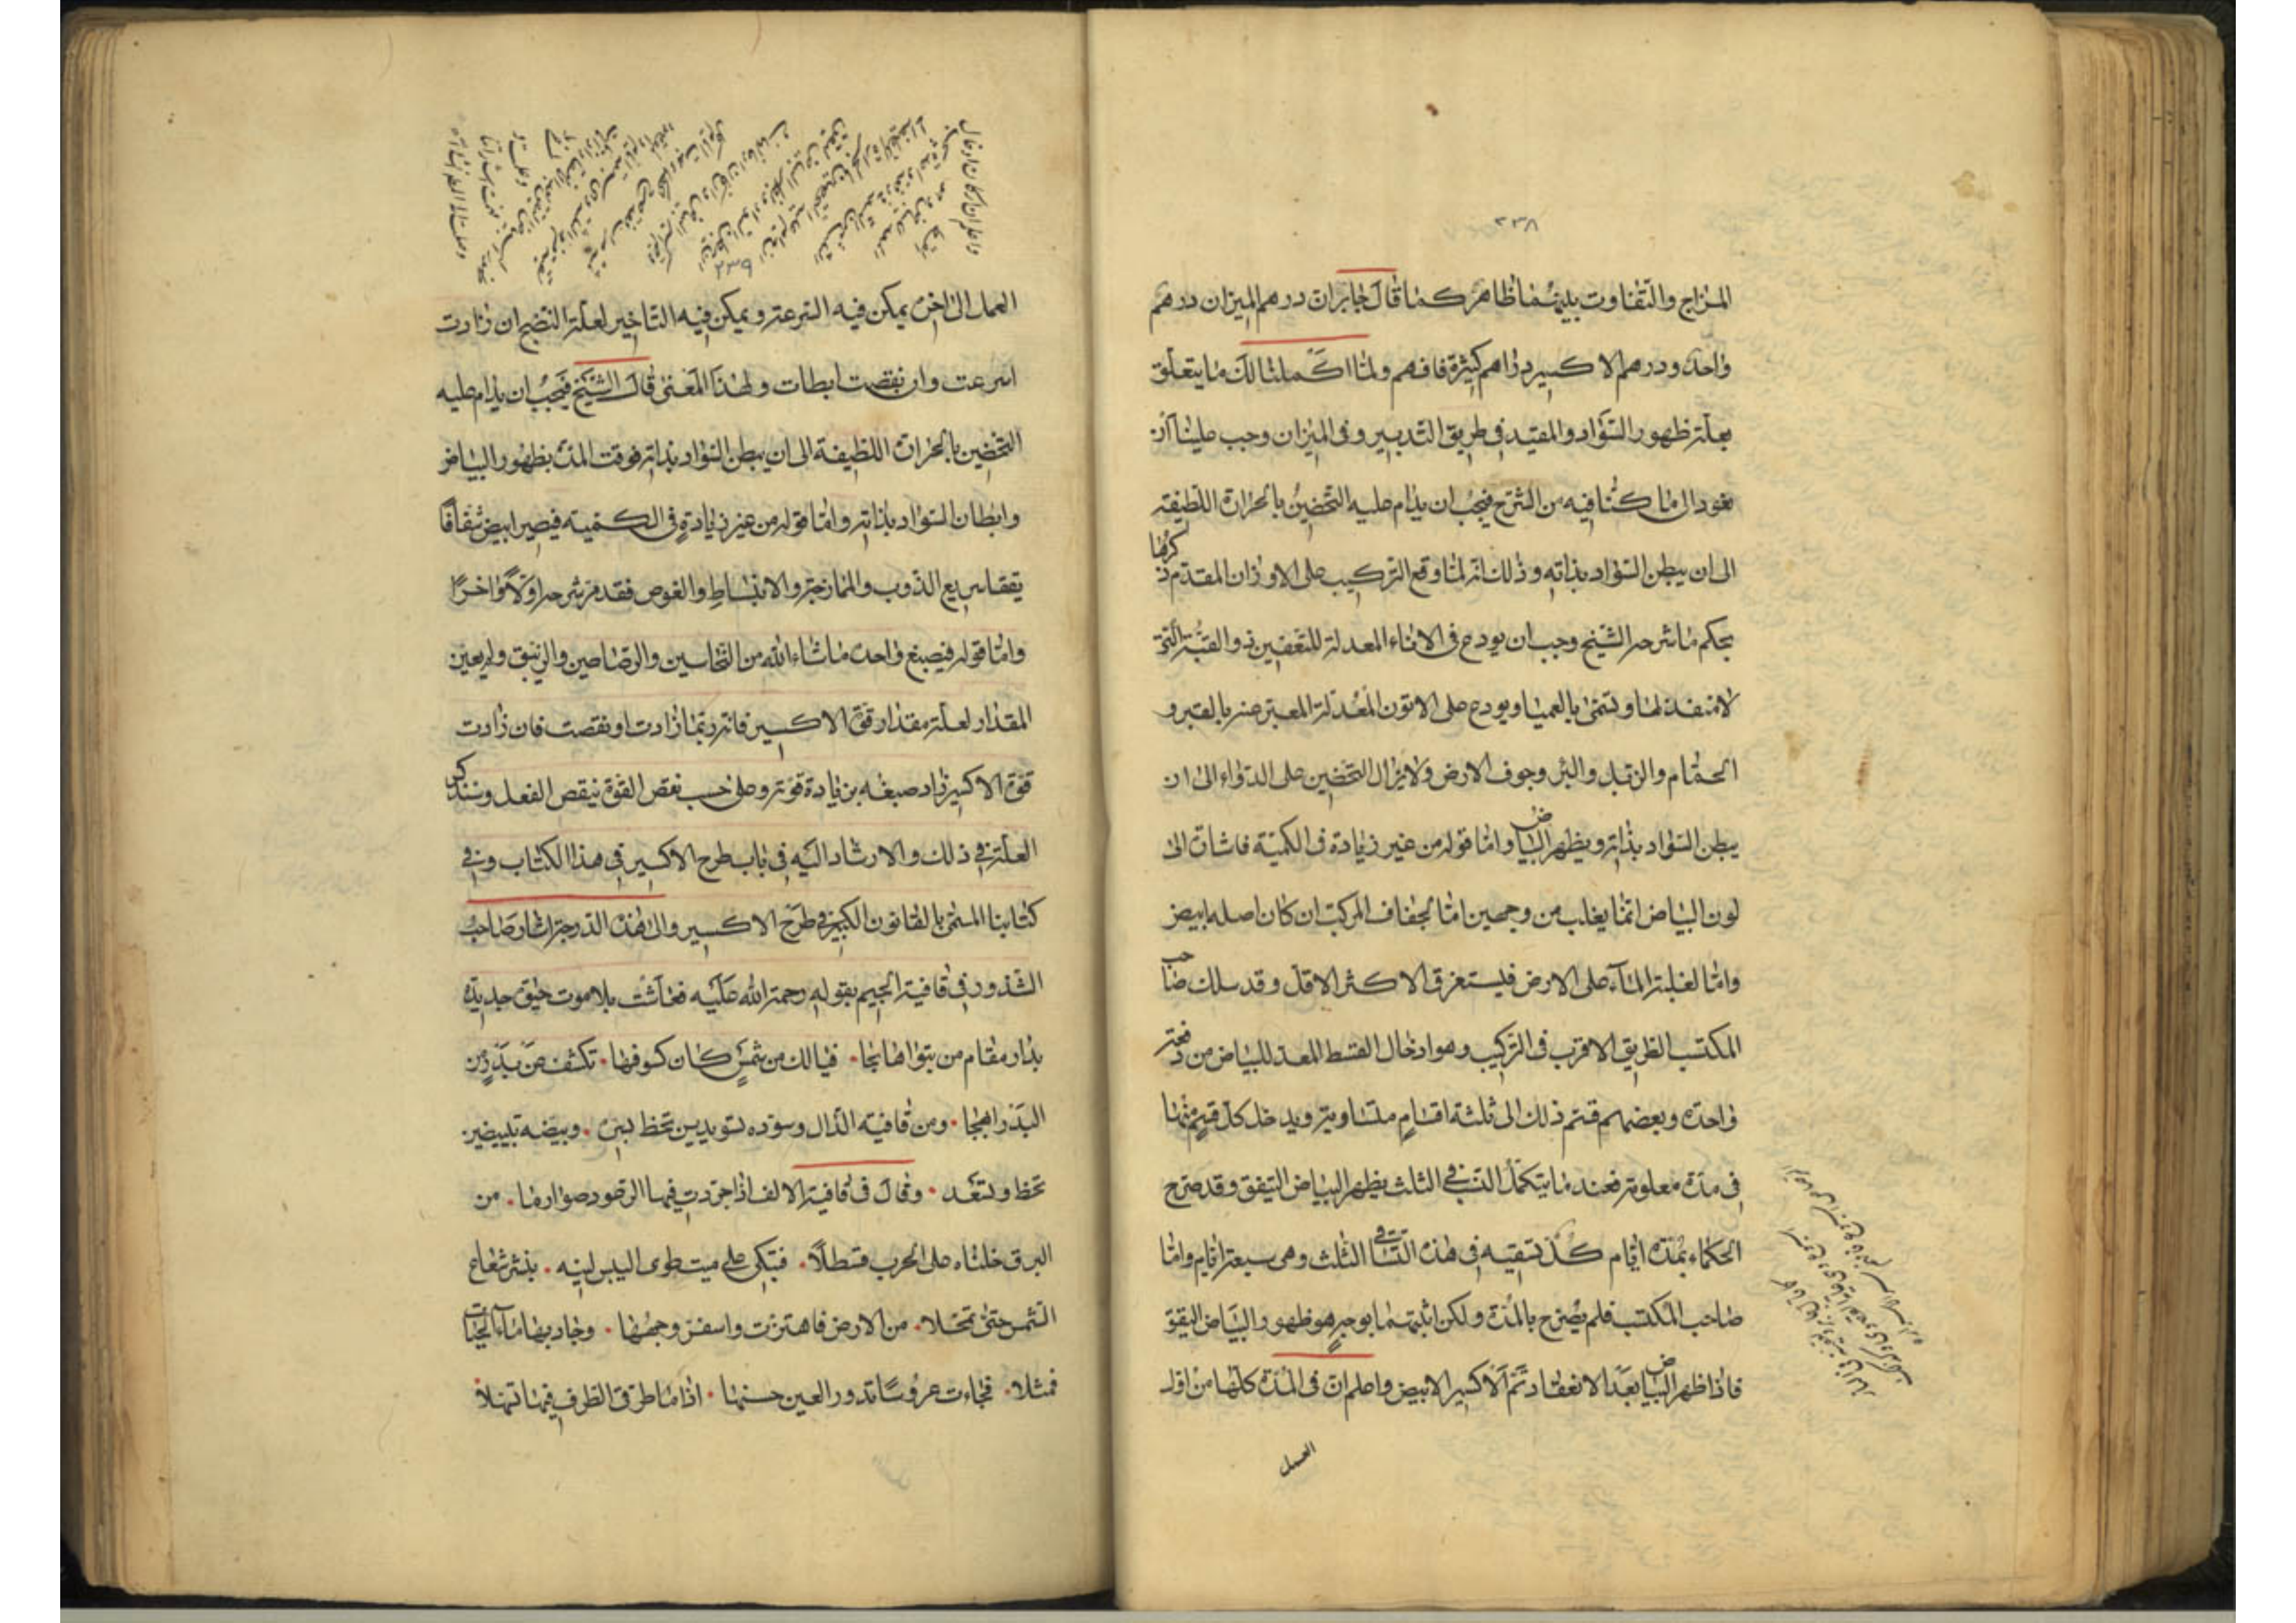 ٢٣٨
المزاج والتفاوت بينهما ظاهر كما قال جابر ان درهم الميزان درهم
واحد ودرهم الاكسير دراهم كثيرة فافهم ولما اكملنا لك ما يتعلق
بعلة ظهور السواد والمقيد في طريق التدبير وفي الميزان وجب علينا ان
نعود الى ما كنا فيه من الشرح فيجب ان يدام عليه التحضين بالحرارة اللطيفة
الى ان يبطن السواد بذاته وذلك انه لما وقع التركيب على الاوزان المقدم ذكرها
بحكم ما شرحه الشيخ وجب ان يودع في الاناء المعدلة للتعفين ذو القبة التي
لا منفذ لها وتسمى بالعميا ويودع على الاتون المعدلة المعبر عنه بالقبر و
الحمام والزبل والبئر وجوف الارض ولا يزال التحضين على الدواء الى ان
يبطن السواد بذاته ويظهر البياض واما قوله من غير زيادة في الكمية فاشارة الى
لون البياض انما يغلب من وجهين اما لجفاف المركب ان كان اصله ابيض
واما لغلبة الماء على الارض فليستغرق الاكثر الاقل وقد سلك صاحب
المكتسب الطريق الاقرب في التركيب وهو ادخال القسط المعد للبياض من دفعة
واحدة وبعضهم قسم ذلك الى ثلثة اقسام متساوية ويدخل كل قسم منها
في مدة معلومة فعند ما يتكمل الثلث يظهر البياض اليقق وقد صرح
الحكماء بمدة ايام كل تسقية في هذه التساقي الثلث وهي سبعة ايام واما
صاحب المكتسب فلم يصرح بالمدة ولكن اثبتها بوجه هو ظهور البياض اليقق
فاذا ظهر البياض بعد الانعقاد تم الاكسير الابيض واعلم ان في المدة كلها من اول
العمل
٢٣٩
العمل الى اخره يمكن فيه السرعة ويمكن فيه التاخير لعلة النضج ان زادت
اسرعت وان نقصت ابطات ولهذا المعنى قال الشيخ فيجب ان يدام عليه
التحضين بالحرارة اللطيفة الى ان يبطن السواد بذاته فوقت المدة بظهور البياض
وابطان السواد بذاته واما قوله من غير زيادة في الكمية فيصير ابيض شفافا
يققا سريع الذوب والممازجة والانبساط والغوص فقد مر شرحه اولا واخرا
واما قوله فيصبغ واحده ما شاء الله من النحاسين والرصاصين والزيبق ولم يعين
المقدار لعلة مقدار قوة الاكسير فانه ربما زادت او نقصت فان زادت
قوة الاكسير زاد صبغه بزيادة قوته وعلى حسب نقص القوة ينقص الفعل وسنذكر
العلة في ذلك والارشاد اليه في باب طرح الاكسير في هذا الكتاب وفي
كتابنا المسمى بالقانون الكبير في طرح الاكسير والى هذه الدرجة اشار صاحب
الشذور في قافية الجيم بقوله رحمة الله عليه فعاشت بلا موت حيوة جديدة
بدار مقام من تبواها نجا • فيا لك من شمس كان كسوفها • تكشف عن بدر من
البدر ابهجا • ومن قافية الدال وسوده تسويدين تحظ بسره • وبيضه تبييضين
تحظ وتسعد • وقال في قافية الالف اذا جردت فيها الرعود صوارما • من
البرق خلناه على الحرب قسطلا • فتبكى على ميت طوى اليبس لينه • بنثر شعاع
الشمس حتى تحللا • من الارض فاهتزت واسفر وجهها • وجاد بها ماء الحياة
فمثلا • فجاءت عروسا تدور العين حسنها • اذا ما طرق الطرف فيها تهللا